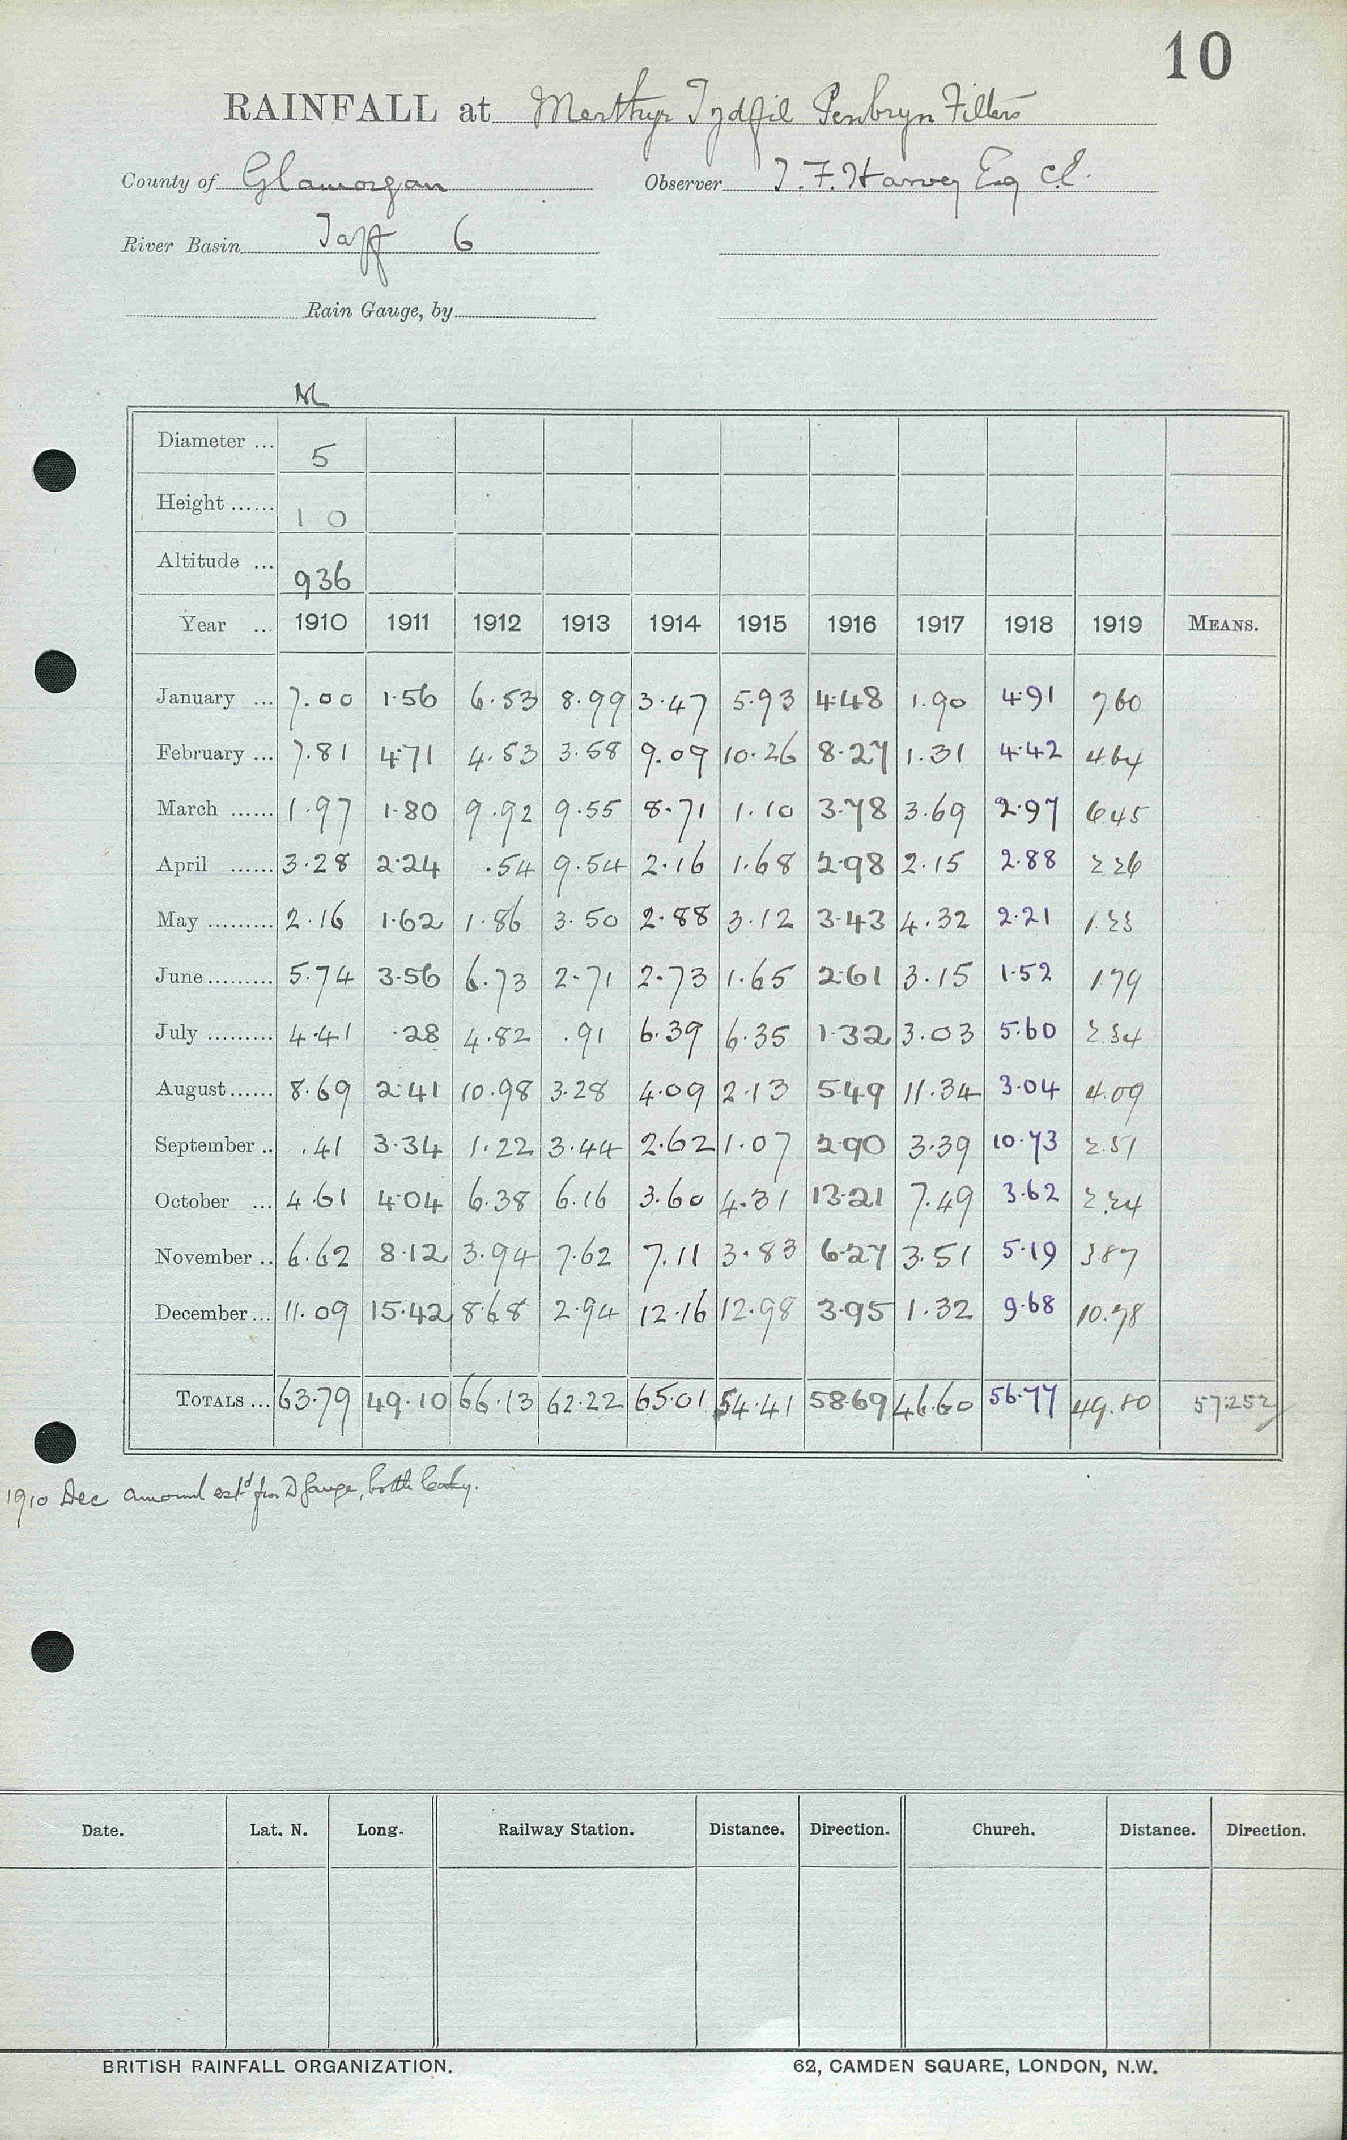 10
RAINFALL at Merthyr Tydfil Penbryn Filters
County of Glamorgan Observer T. F. Harvey Esq C.E.
River Basin Taff 6
Rain Gauge, by
M
Diameter ... 5
Height ...... 1 0
Altitude ... 936
Year ... 1910 1911 1912 1913 1914 1915 1916 1917 1918 1919 MEANS.
January ... 7.00 1.56 6.53 8.99 3.47 5.93 4.48 1.90 4.91 760
February ... 7.81 4.71 4.53 3.58 9.09 10.26 8.27 1.31 4.42 464
March ...... 1.97 1.80 9.92 9.55 8.71 1.10 3.78 3.69 2.97 645
April ...... 3.28 2.24 .54 9.54 2.16 1.68 2.98 2.15 2.88 226
May ......... 2.16 1.62 1.86 3.50 2.88 3.12 3.43 4.32 2.21
June ......... 5.74 3.56 6.73 2.71 2.73 1.65 2.61 3.15 1.52 1.79
July ......... 4.41 .28 4.82 .91 6.39 6.35 1.32 3.03 5.60 2.34
August ...... 8.69 2.41 10.98 3.28 4.09 2.13 5.49 11.34 3.04 4.09
September .. .41 3.34 1.22 3.44 2.62 1.07 2.90 3.39 10.73 2.51
October ... 4.61 4.04 6.38 6.16 3.60 4.31 13.21 7.49 3.62 2.24
November .. 6.62 8.12 3.94 7.62 7.11 3.83 6.27 3.51 5.19 387
December ... 11.09 15.42 8.68 2.94 12.16 12.98 3.95 1.32 9.68 10.78
TOTALS ... 63.79 49.10 66.13 62.22 65.01 54.41 58.69 46.60 56.77 49.80 57.252
1910 Dec amount estd from D gauge, bottle leaky.
Date. Lat. N. Long. Railway Station. Distance. Direction. Church. Distance. Direction.
BRITISH RAINFALL ORGANIZATION. 62, CAMDEN SQUARE, LONDON, N.W.